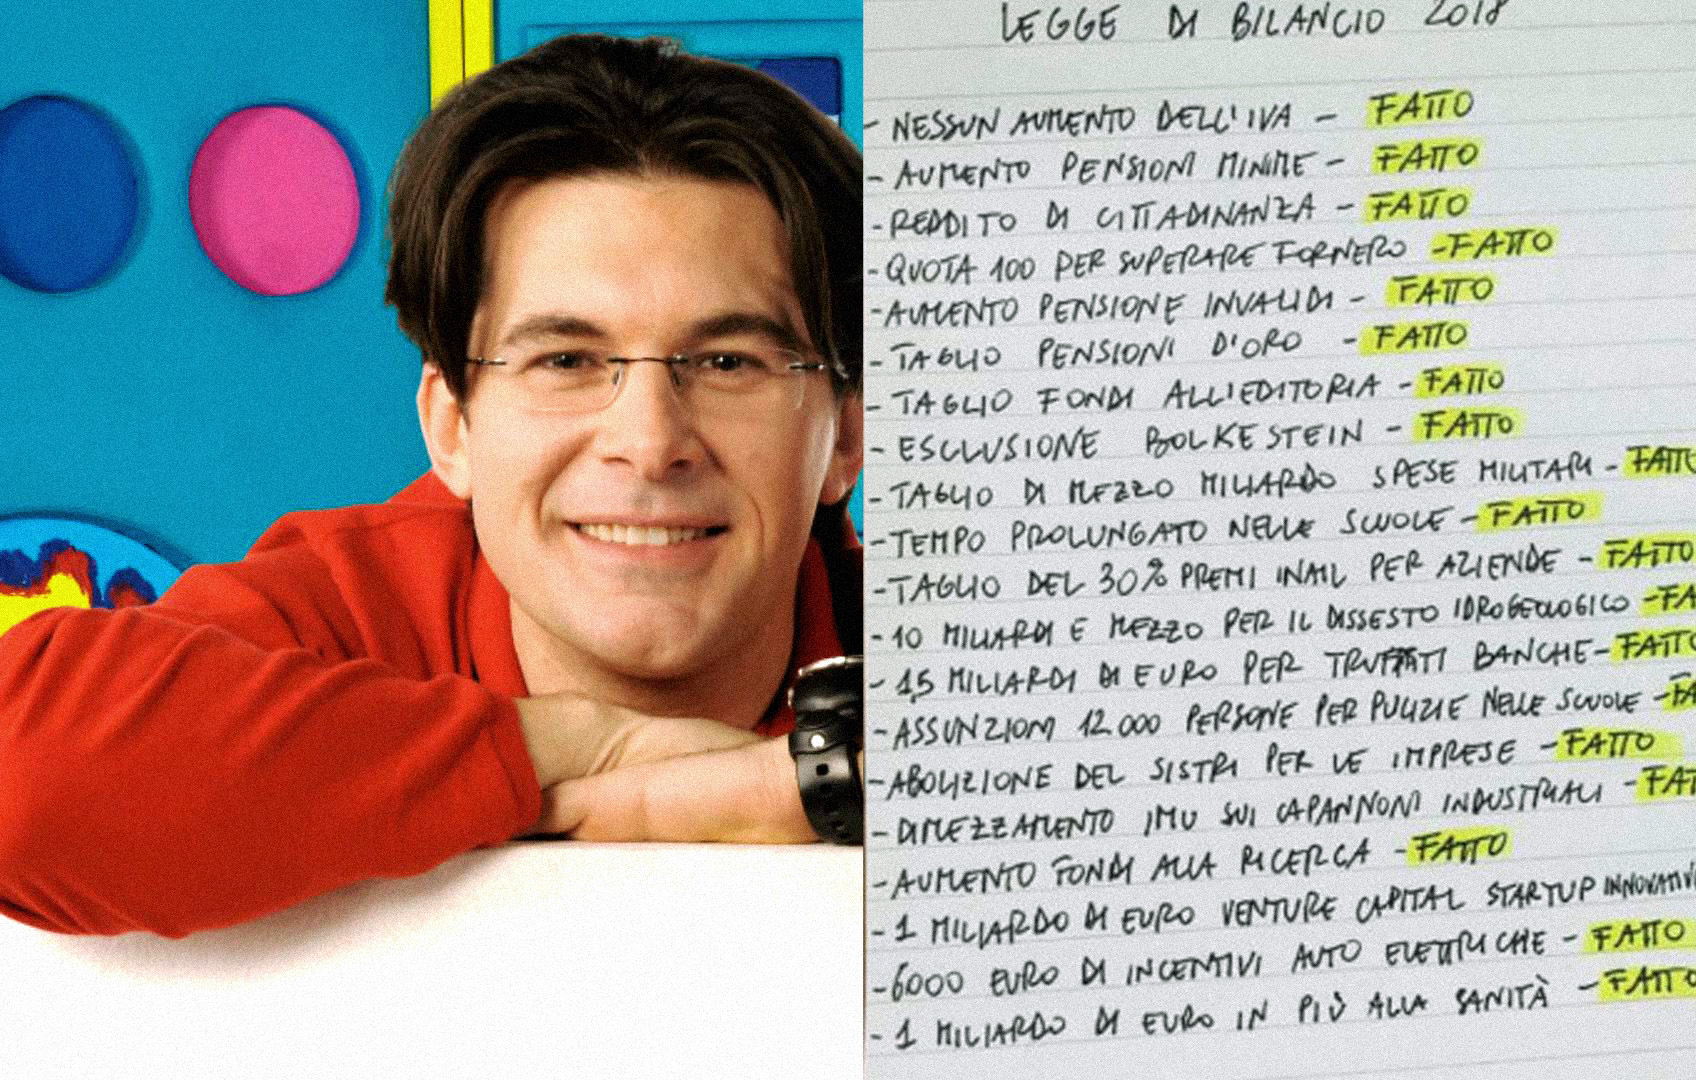 LEGGE DI BILANCIO 2018
- NESSUN AUMENTO DELL'IVA - FATTO
- AUMENTO PENSIONI MINIME - FATTO
- REDDITO DI CITTADINANZA - FATTO
- QUOTA 100 PER SUPERARE FORNERO - FATTO
- AUMENTO PENSIONE INVALIDI - FATTO
- TAGLIO PENSIONI D'ORO - FATTO
- TAGLIO FONDI ALL'EDITORIA - FATTO
- ESCLUSIONE BOLKESTEIN - FATTO
- TAGLIO DI MEZZO MILIARDO SPESE MILITARI - FATTO
- TEMPO PROLUNGATO NELLE SCUOLE - FATTO
- TAGLIO DEL 30% PREMI INAIL PER AZIENDE - FATTO
- 10 MILIARDI E MEZZO PER IL DISSESTO IDROGEOLOGICO - FA
- 1,5 MILIARDI DI EURO PER TRUFFATI BANCHE - FATTO
- ASSUNZIONI 12.000 PERSONE PER PULIZIE NELLE SCUOLE - FA
- ABOLIZIONE DEL SISTRI PER LE IMPRESE - FATTO
- DIMEZZAMENTO IMU SUI CAPANNONI INDUSTRIALI - FAT
- AUMENTO FONDI ALLA RICERCA - FATTO
- 1 MILIARDO DI EURO VENTURE CAPITAL STARTUP INNOVATIVE
- 6000 EURO DI INCENTIVI AUTO ELETTRICHE - FATTO
- 1 MILIARDO DI EURO IN PIÙ ALLA SANITÀ - FATTO